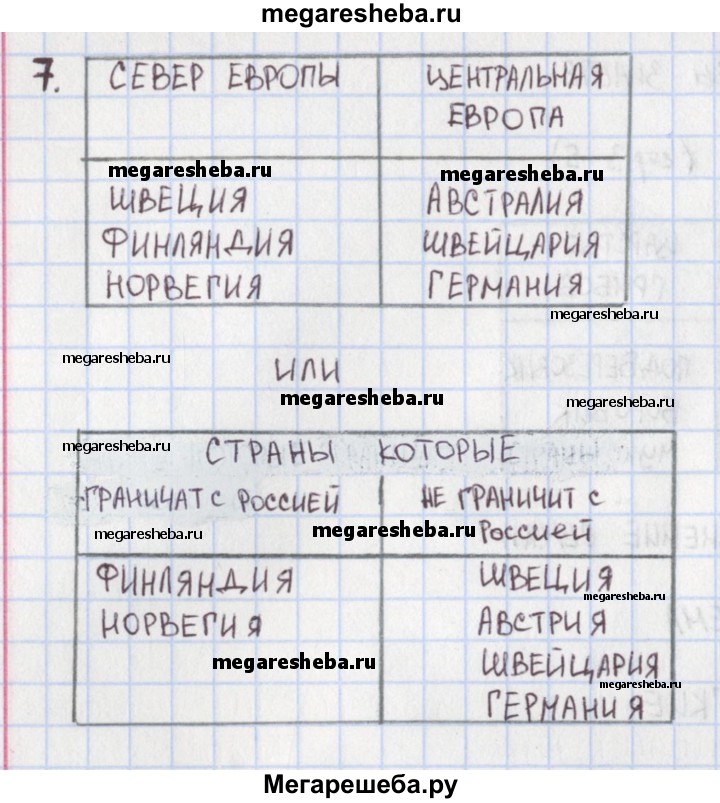 megaresheba.ru
7.
СЕВЕР ЕВРОПЫ
ЦЕНТРАЛЬНАЯ
ЕВРОПА
megaresheba.ru
megaresheba.ru
ШВЕЦИЯ
АВСТРАЛИЯ
ФИНЛЯНДИЯ
ШВЕЙЦАРИЯ
НОРВЕГИЯ
ГЕРМАНИЯ
megaresheba.ru
ИЛИ
megaresheba.ru
megaresheba.ru
megaresheba.ru
СТРАНЫ КОТОРЫЕ
ГРАНИЧАТ С РОССИЕЙ
НЕ ГРАНИЧИТ С
РОССИЕЙ
megaresheba.ru
megaresheba.ru
ФИНЛЯНДИЯ
ШВЕЦИЯ
megaresheba.ru
НОРВЕГИЯ
АВСТРИЯ
megaresheba.ru
ШВЕЙЦАРИЯ
megaresheba.ru
ГЕРМАНИЯ
Мегарешеба.ру